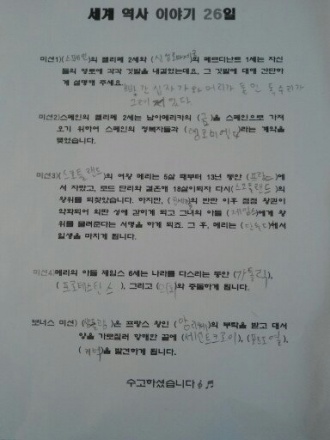 세계 역사 이야기 26일
미션1)(스페인)의 펠리페 2세와 ( )의 페르디난드 1세는 자신
들의 항로에 각각 깃발을 내걸었는데요. 그 깃발에 대해 간단하
게 설명해 주세요.
빨간 십자가와 머리가 둘인 독수리가
그려져있다
미션2)스페인의 펠리페 2세는 남아메리카의 (금)을 스페인으로 가져
오기 위하여 스페인의 정복자들과 ( )라는 계약을
맺었습니다.
미션3)(스코틀랜드)의 여왕 메리는 5살 때부터 13년 동안 (프랑스)에
서 자랐고, 로드 단리와 결혼해 18살이되자 다시(스코틀랜드)의
왕위를 되찾았습니다. 하지만, ( )의 반란 이후 점점 왕권이
약화되어 외딴 성에 갇히게 되고 그녀의 아들 (제임스)에게 왕
위를 물려준다는 서명을 하게 되죠. 그 후, 메리는 ( )에서
일생을 마치게 됩니다.
미션4)메리의 아들 제임스 6세는 나라를 다스리는 동안 (가톨릭),
(프로테스탄스), 그리고 (의회)와 충돌하게 됩니다.
보너스 미션) ( )은 프랑스 상인 ( )의 부탁을 받고 대서
양을 가로질러 항해한 끝에 (세인트크로이), (포트로열),
( )을 발견하게 됩니다.
수고하셨습니다♬